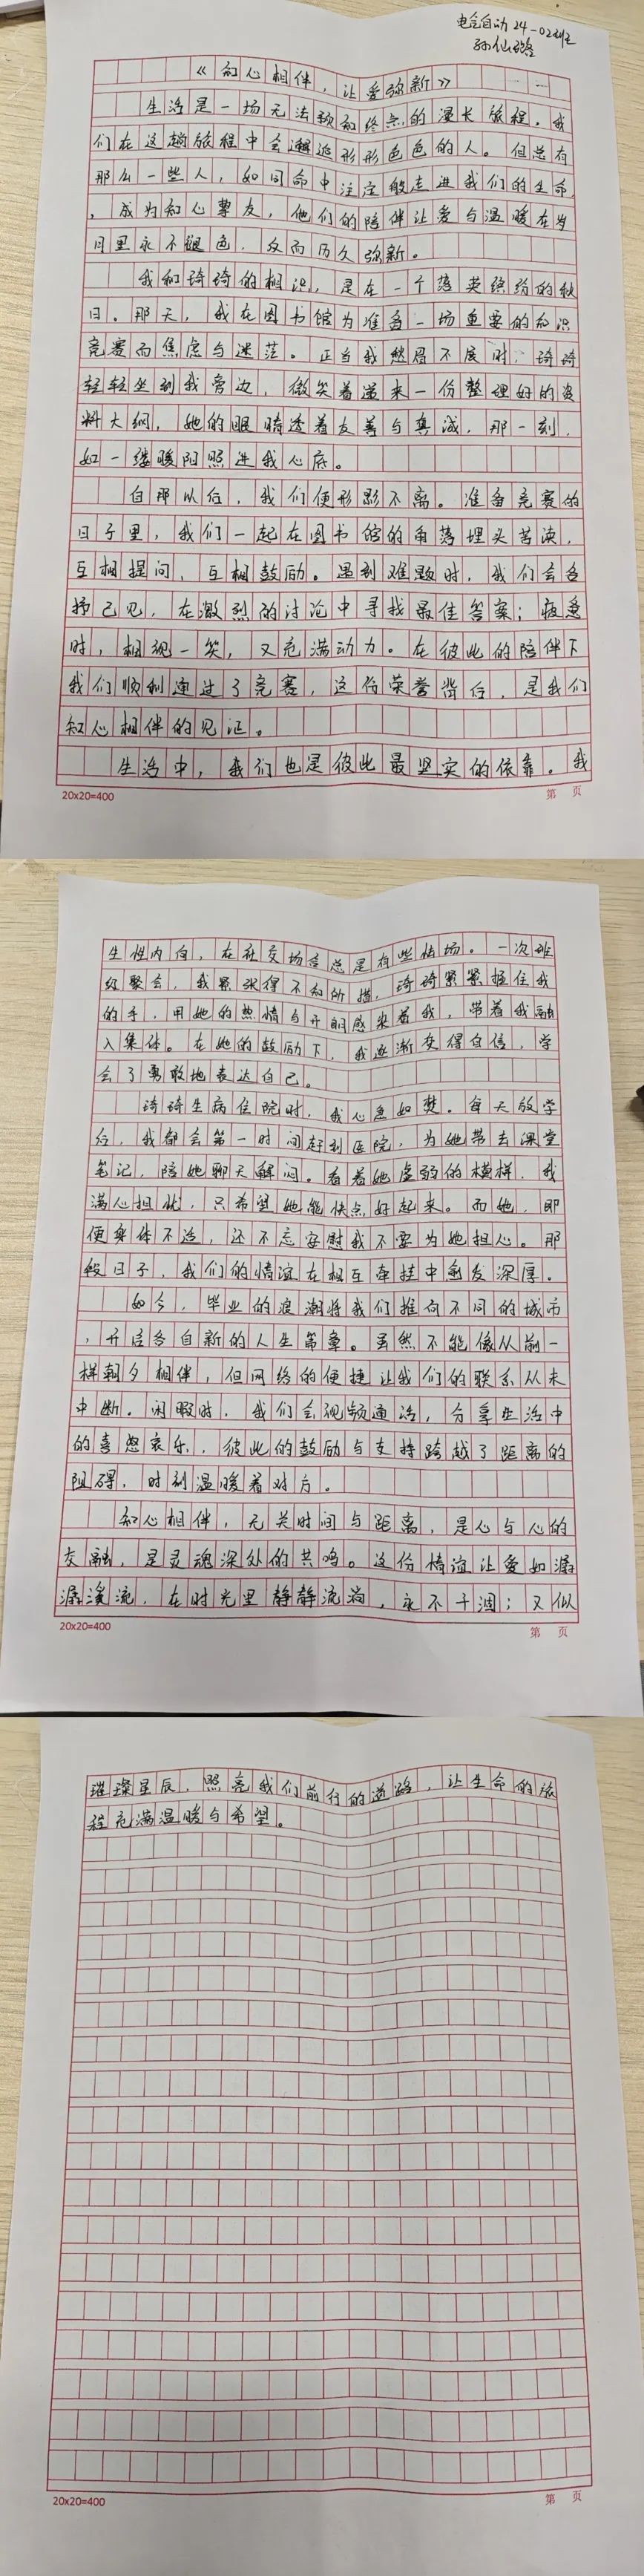 电气自动24-02班
孙仙
《知心相伴，让爱弥新》
生活是一场无法预知终点的漫长旅程。我
们在这趟旅程中会邂逅形形色色的人。但总有
那么一些人，如同命中注定般走进我们的生命
，成为知心挚友，他们的陪伴让爱与温暖在岁
月里永不褪色，反而历久弥新。
我和琦琦的相识，是在一个落英缤纷的秋
日。那天，我在图书馆为准备一场重要的知识
竞赛而焦虑与迷茫。正当我愁眉不展时，琦琦
轻轻坐到我旁边，微笑着递来一份整理好的资
料大纲，她的眼睛透着友善与真诚，那一刻，
如一缕暖阳照进我心底。
自那以后，我们便形影不离。准备竞赛的
日子里，我们一起在图书馆的角落埋头苦读，
互相提问，互相鼓励。遇到难题时，我们会各
抒己见，在激烈的讨论中寻找最佳答案；疲惫
时，相视一笑，又充满动力。在彼此的陪伴下
我们顺利通过了竞赛，这份荣誉背后，是我们
知心相伴的见证。
生活中，我们也是彼此最坚实的依靠。我
20x20=400
第 页
生性内向，在社交场合总是有些怯场。一次班
级聚会，我紧张得不知所措，琦琦紧紧握住我
的手，用她的热情与开朗感染着我，带着我融
入集体。在她的鼓励下，我逐渐变得自信，学
会了勇敢地表达自己。
琦琦生病住院时，我心急如焚。每天放学
后，我都会第一时间赶到医院，为她带去课堂
笔记，陪她聊天解闷。看着她虚弱的模样，我
满心担忧，只希望她能快点好起来。而她，即
便身体不适，还不忘安慰我不要为她担心。那
段日子，我们的情谊在相互牵挂中愈发深厚。
如今，毕业的浪潮将我们推向不同的城市
，开启各自新的人生篇章。虽然不能像从前一
样朝夕相伴，但网络的便捷让我们的联系从未
中断。闲暇时，我们会视频通话，分享生活中
的喜怒哀乐，彼此的鼓励与支持跨越了距离的
阻碍，时刻温暖着对方。
知心相伴，无关时间与距离，是心与心的
交融，是灵魂深处的共鸣。这份情谊让爱如潺
潺溪流，在时光里静静流淌，永不干涸；又似
20x20=400
第 页
璀璨星辰，照亮我们前行的道路，让生命的旅
程充满温暖与希望。
20x20=400
第 页